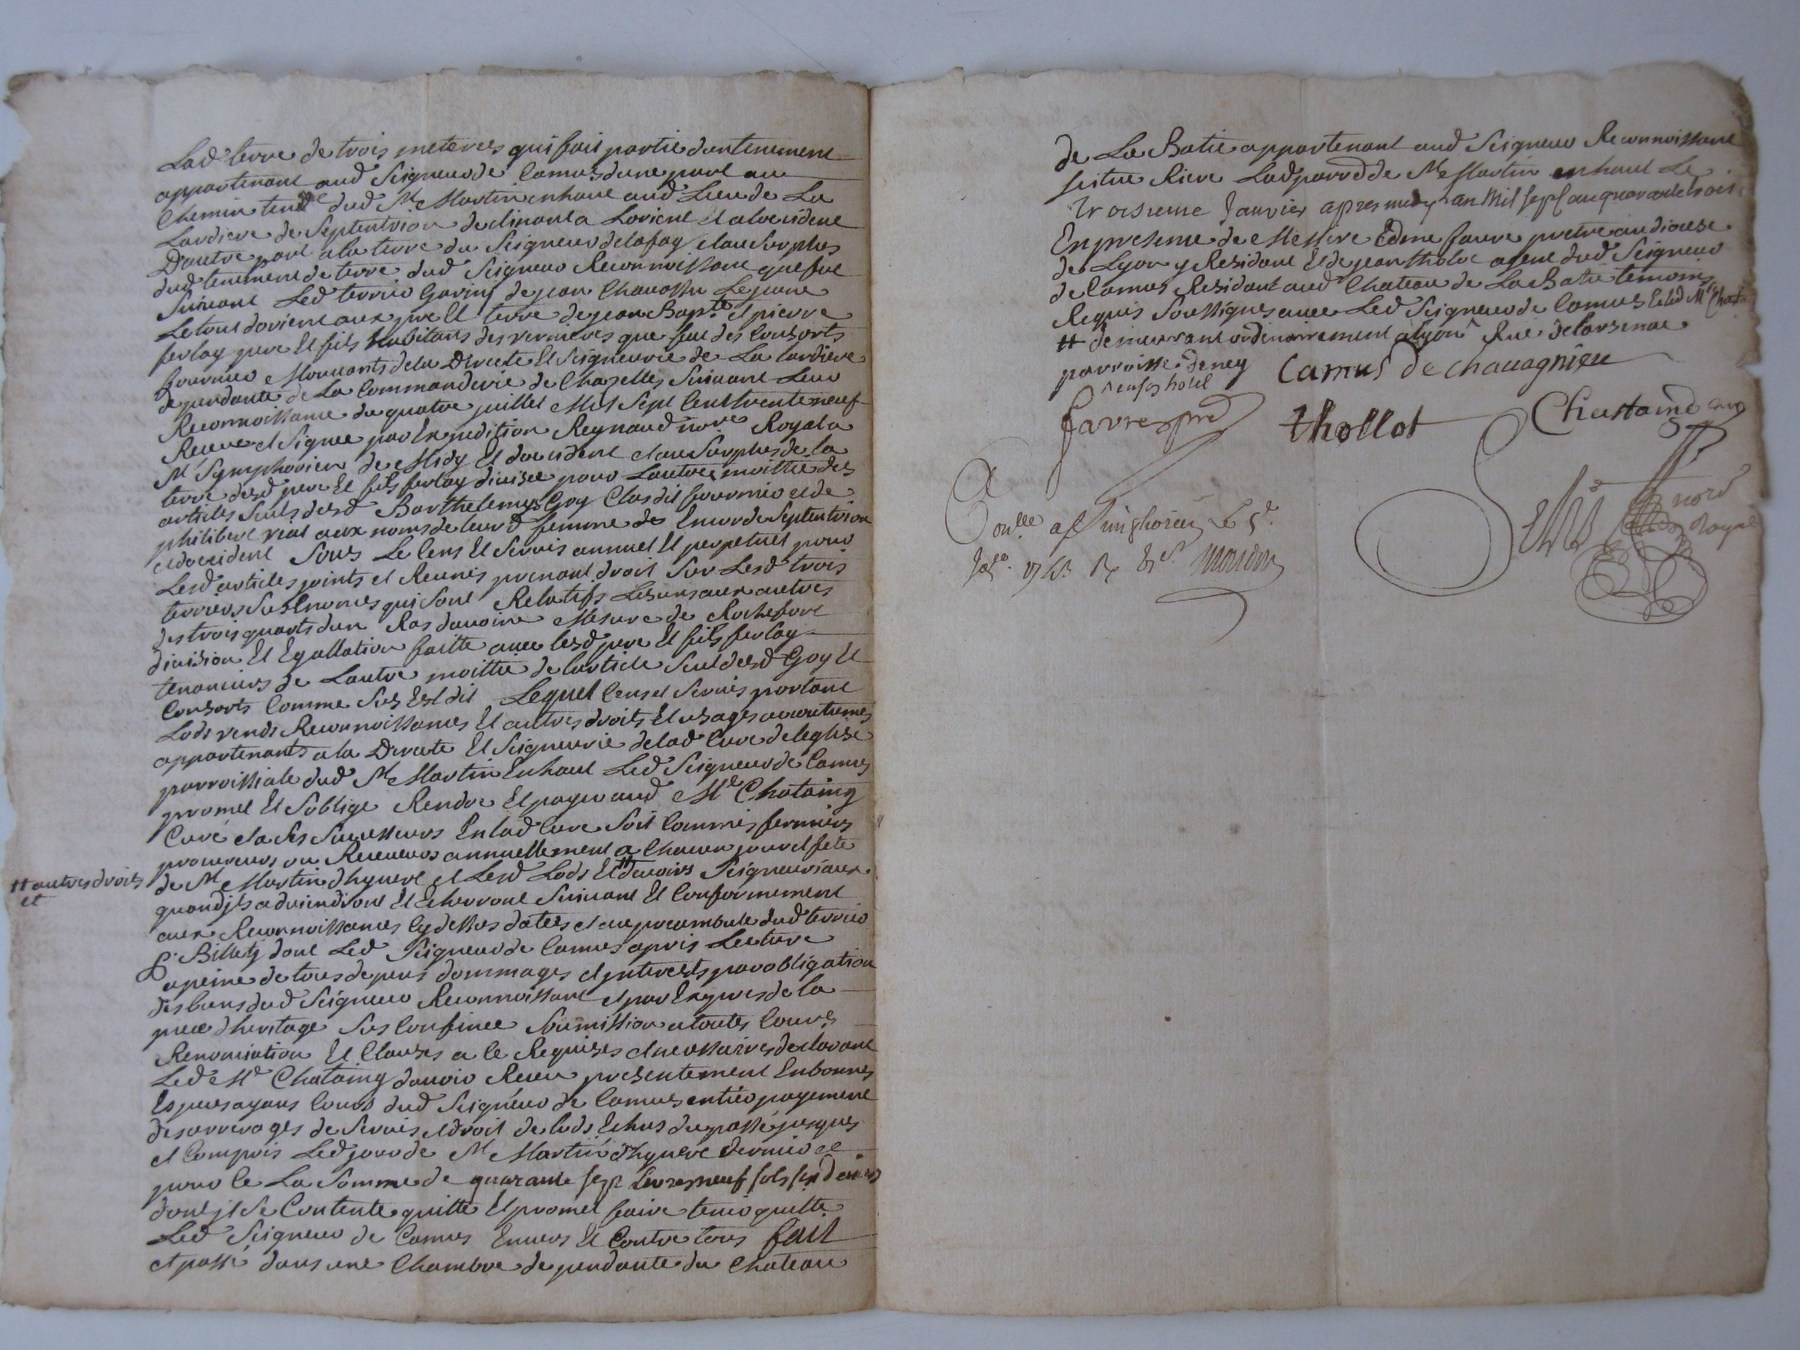 Lad terre de trois meteres qui fait partie d'un tenement
appartenant aud Seigneur de Camus d'une part au
Chemin tend^t dud St Martin enhaut aud Lieu de La
Lardiere de Septentrion declinant a Lorient et aloccident
D'autre part a la terre du Seigneur delafay et au Surplus
dud tenement de terre dud Seigneur Reconnoissant que fut
Suivant Led terrier Gavin de jean Chavassu Le jeune
Le tout dorient aux pre et terre de jean Bapte et pierre
ferlay pere et fils habitans des vernieres que fut des Consorts
fournier Mouvants de la Directe et Seigneurie de La lardiere
dependante de La Commanderie de Chazelles Suivant Leur
Reconnoissance du quatre juillet Mil Sept Cent trente neuf
Receue et Signee par Expedition Reynaud nore Royal a
St Symphorien de Midy et doccident et au Surplus de la
terre desd pere et fils ferlay divisée pour Lautre moittié des
articles Seuls desd Barthelemy Goy Clas dit fournier et de
philibert vial aux noms de leurd femme de Encor de Septentrion
et doccident Sous Le Cens et Servis annuel et perpetuel pour
Lesd articles joints et Reunis prenant droit Sur Lesd trois
terriers Susnomés qui Sont Relatifs Les uns aux autres
des trois quarts d'un Ras davoine Mesure de Rochefort
division et Egallation faitte avec lesd pere et fils ferlay
tenanciers de Lautre moittié de larticle Seul desd Goy et
Consorts Comme Sus Est dit Lequel Cens et Servis portant
Lods vends Reconnoissances et autres droits et usages accoutumés
appartenants a la Directe et Seigneurie delad Cure de leglise
parroissiale dud St Martin Enhaut Led Seigneur de Camus
promet et Soblige Rendre et payer aud Me Chataing
Curé et a Ses Successeurs En lad Cure Soit Commis fermiers
procureurs ou Receveurs annuellement a Chacun jour et fete
de St Martin dhyvert et Lesd Lods et # devoirs Seigneuriaux
# autres droits
et
quand jls adviendront et Echerront Suivant et Conformement
aux Reconnoissances Cy dessus datées et au preambule dud terrier
Billetj dont Led Seigneur de Camus apris Lecture
a peine de tous depens dommages et jnterests par obligation
des biens dud Seigneur Reconnoissant et par Expres de la
piece dheritage Sus Confinée Soumission a toutes Cours
Renonciation et Clauses a Ce Requises et necessaires declarant
Led Me Chataing davoir Receu presentement En bonnes
Especes ayans Cours dud Seigneur de Camus entier payement
des arrerages de Servis et droit de lods Echus du passé jusques
et Compris Led jour de St Martin dhyvert dernier et
pour ce La Somme de quarante sept Livres neuf sols six deniers
dont jl Se Contente quitte et promet faire tenir quitte
Led Seigneur de Camus Envers et Contre tous fait
et passé dans une Chambre dependante du Chateau
de La Batie appartenant aud Seigneur Reconnoissant
scitue Riere Lad parrd de St Martin enhaut Le
troisieme Janvier apres midy an Mil sept cent quarante trois
En presence de Messire Edme faure pretre au diocese
de Lyon y Residant et de jean thollot agent dud Seigneur
de Camus Residant aud Chateau de La Batie temoins
Requis Soussignes avec Led Seigneur de Camus et led Me Chat
# demeurant ordinairement a Lyon Rue de larsenac
parroisse denay
Camus de chavagnieu
favre ptre
thollot
Chastaing curé
Conlle a St Simphorien Le 5e